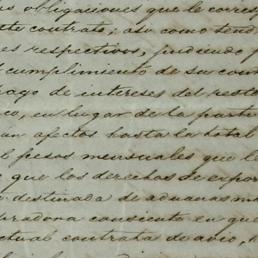 obligaciones que le corres
te contrato; asi como tend
es respectivos, pudiendo p
l cumplimiento de su com
ago de intereses del resto
co, en lugar de la parti
án afectos hasta la total
l pesos mensuales que le
que los derechos de expor
destinada de aduanas ma
radora consiente en que
ctual contrata de avio, a